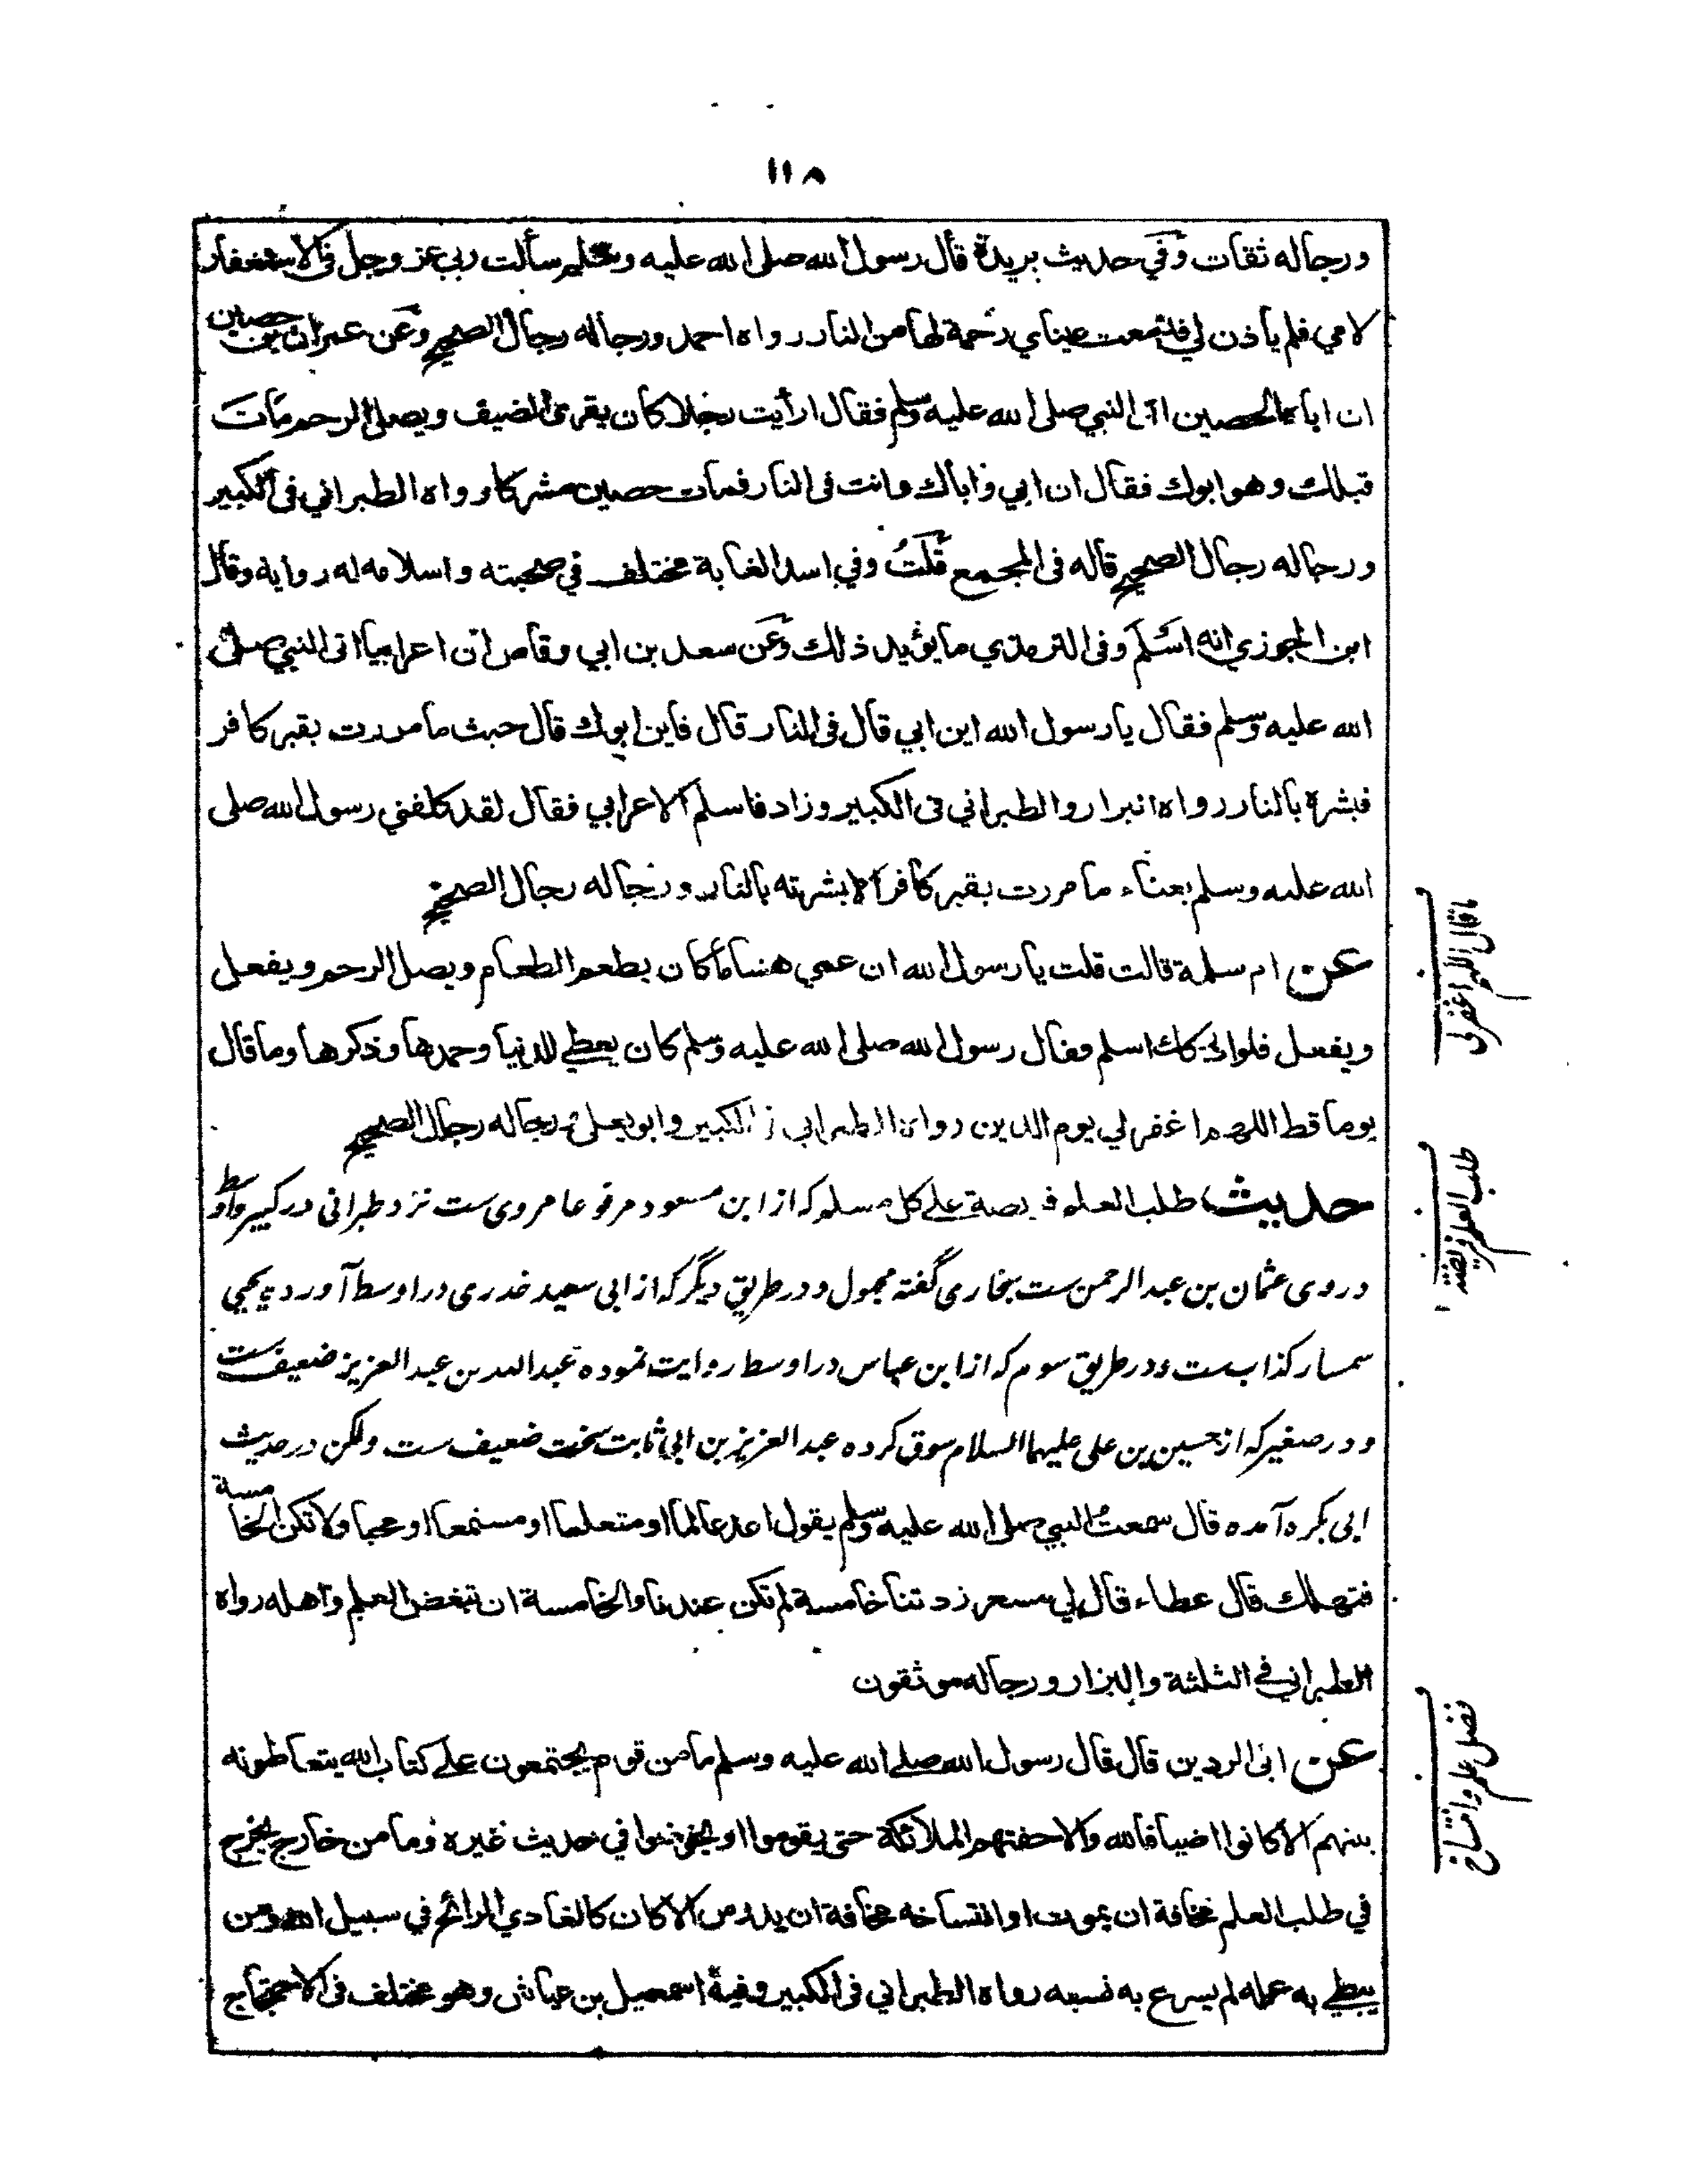 ١١٨
ورجاله ثقات وفي حديث بريدة قال رسول الله صلى الله عليه وسلم سألت ربي عز وجل في الاستغفار
لامي فلم يأذن لي فدمعت عيناي رحمة لها من النار رواه احمد ورجاله رجال الصحيح وعن عمران بن حصين
ان اباه الحصين اتى النبي صلى الله عليه وسلم فقال ارأيت رجلا كان يقرئ الضيف ويصل الرحم مات
قبلك وهو ابوك فقال ان ابي واباك وانت في النار فمات حصين مشركا رواه الطبراني في الكبير
ورجاله رجال الصحيح قاله في المجمع قلت وفي اسد الغابة مختلف في صحبته واسلامه له رواية وقال
ابن الجوزي انه اسلم وفي الترمذي ما يؤيد ذلك وعن سعد بن ابي وقاص ان اعرابيا اتى النبي صلى
الله عليه وسلم فقال يا رسول الله اين ابي قال في النار قال فاين ابوك قال حيث ما مررت بقبر كافر
فبشره بالنار رواه البزار والطبراني في الكبير وزاد فاسلم الاعرابي فقال لقد كلفني رسول الله صلى
الله عليه وسلم بعناء ما مررت بقبر كافر الا بشرته بالنار ورجاله رجال الصحيح
عن ام سلمة قالت قلت يا رسول الله ان عمي هشاما كان يطعم الطعام ويصل الرحم ويفعل
ويفعل فلو ادركك اسلم فقال رسول الله صلى الله عليه وسلم كان يعطي للدنيا وحمدها وذكرها وما قال
يوما قط اللهم اغفر لي يوم الدين رواه الطبراني في الكبير وابو يعلى ورجاله رجال الصحيح
حديث طلب العلم فريضة على كل مسلم كه از ابن مسعود مرفوعا مروی ست نزد طبرانی در كبير واوسط
دروی عثمان بن عبد الرحمن ست بخاری گفته مجهول ودر طريق ديگر كه از ابی سعيد خدری در اوسط آورده يحيی
سمسار كذاب ست ودر طريق سوم كه از ابن عباس در اوسط روايت نموده عبد الله بن عبد العزيز ضعيف ست
ودر صغير كه از حسين بن علی عليهما السلام سوق كرده عبد العزيز بن ابی ثابت سخت ضعيف ست ولكن در حديث
ابی بكره آمده قال سمعت النبي صلى الله عليه وسلم يقول اغد عالما او متعلما او مستمعا او محبا ولا تكن الخامسة
فتهلك قال عطاء قال لي مسعر زدتنا خامسة لم تكن عندنا والخامسة ان تبغض العلم واهله رواه
الطبراني في الثلثة والبزار ورجاله موثقون
عن ابی الردين قال قال رسول الله صلى الله عليه وسلم ما من قوم يجتمعون على كتاب الله يتعاطونه
بينهم الا كانوا اضيافا لله والا حفتهم الملائكة حتى يقوموا او يخوضوا في حديث غيره وما من خارج يخرج
في طلب العلم مخافة ان يموت او انتساخه مخافة ان يدرس الا كان كالغادي الرائح في سبيل الله ومن
يبطي به عمله لم يسرع به نسبه رواه الطبراني في الكبير وفيه اسمعيل بن عياش وهو مختلف في الاحتجاج
ما قال اللهم اغفر لی
طلب العلم فريضة
فضل علم وانتساخ